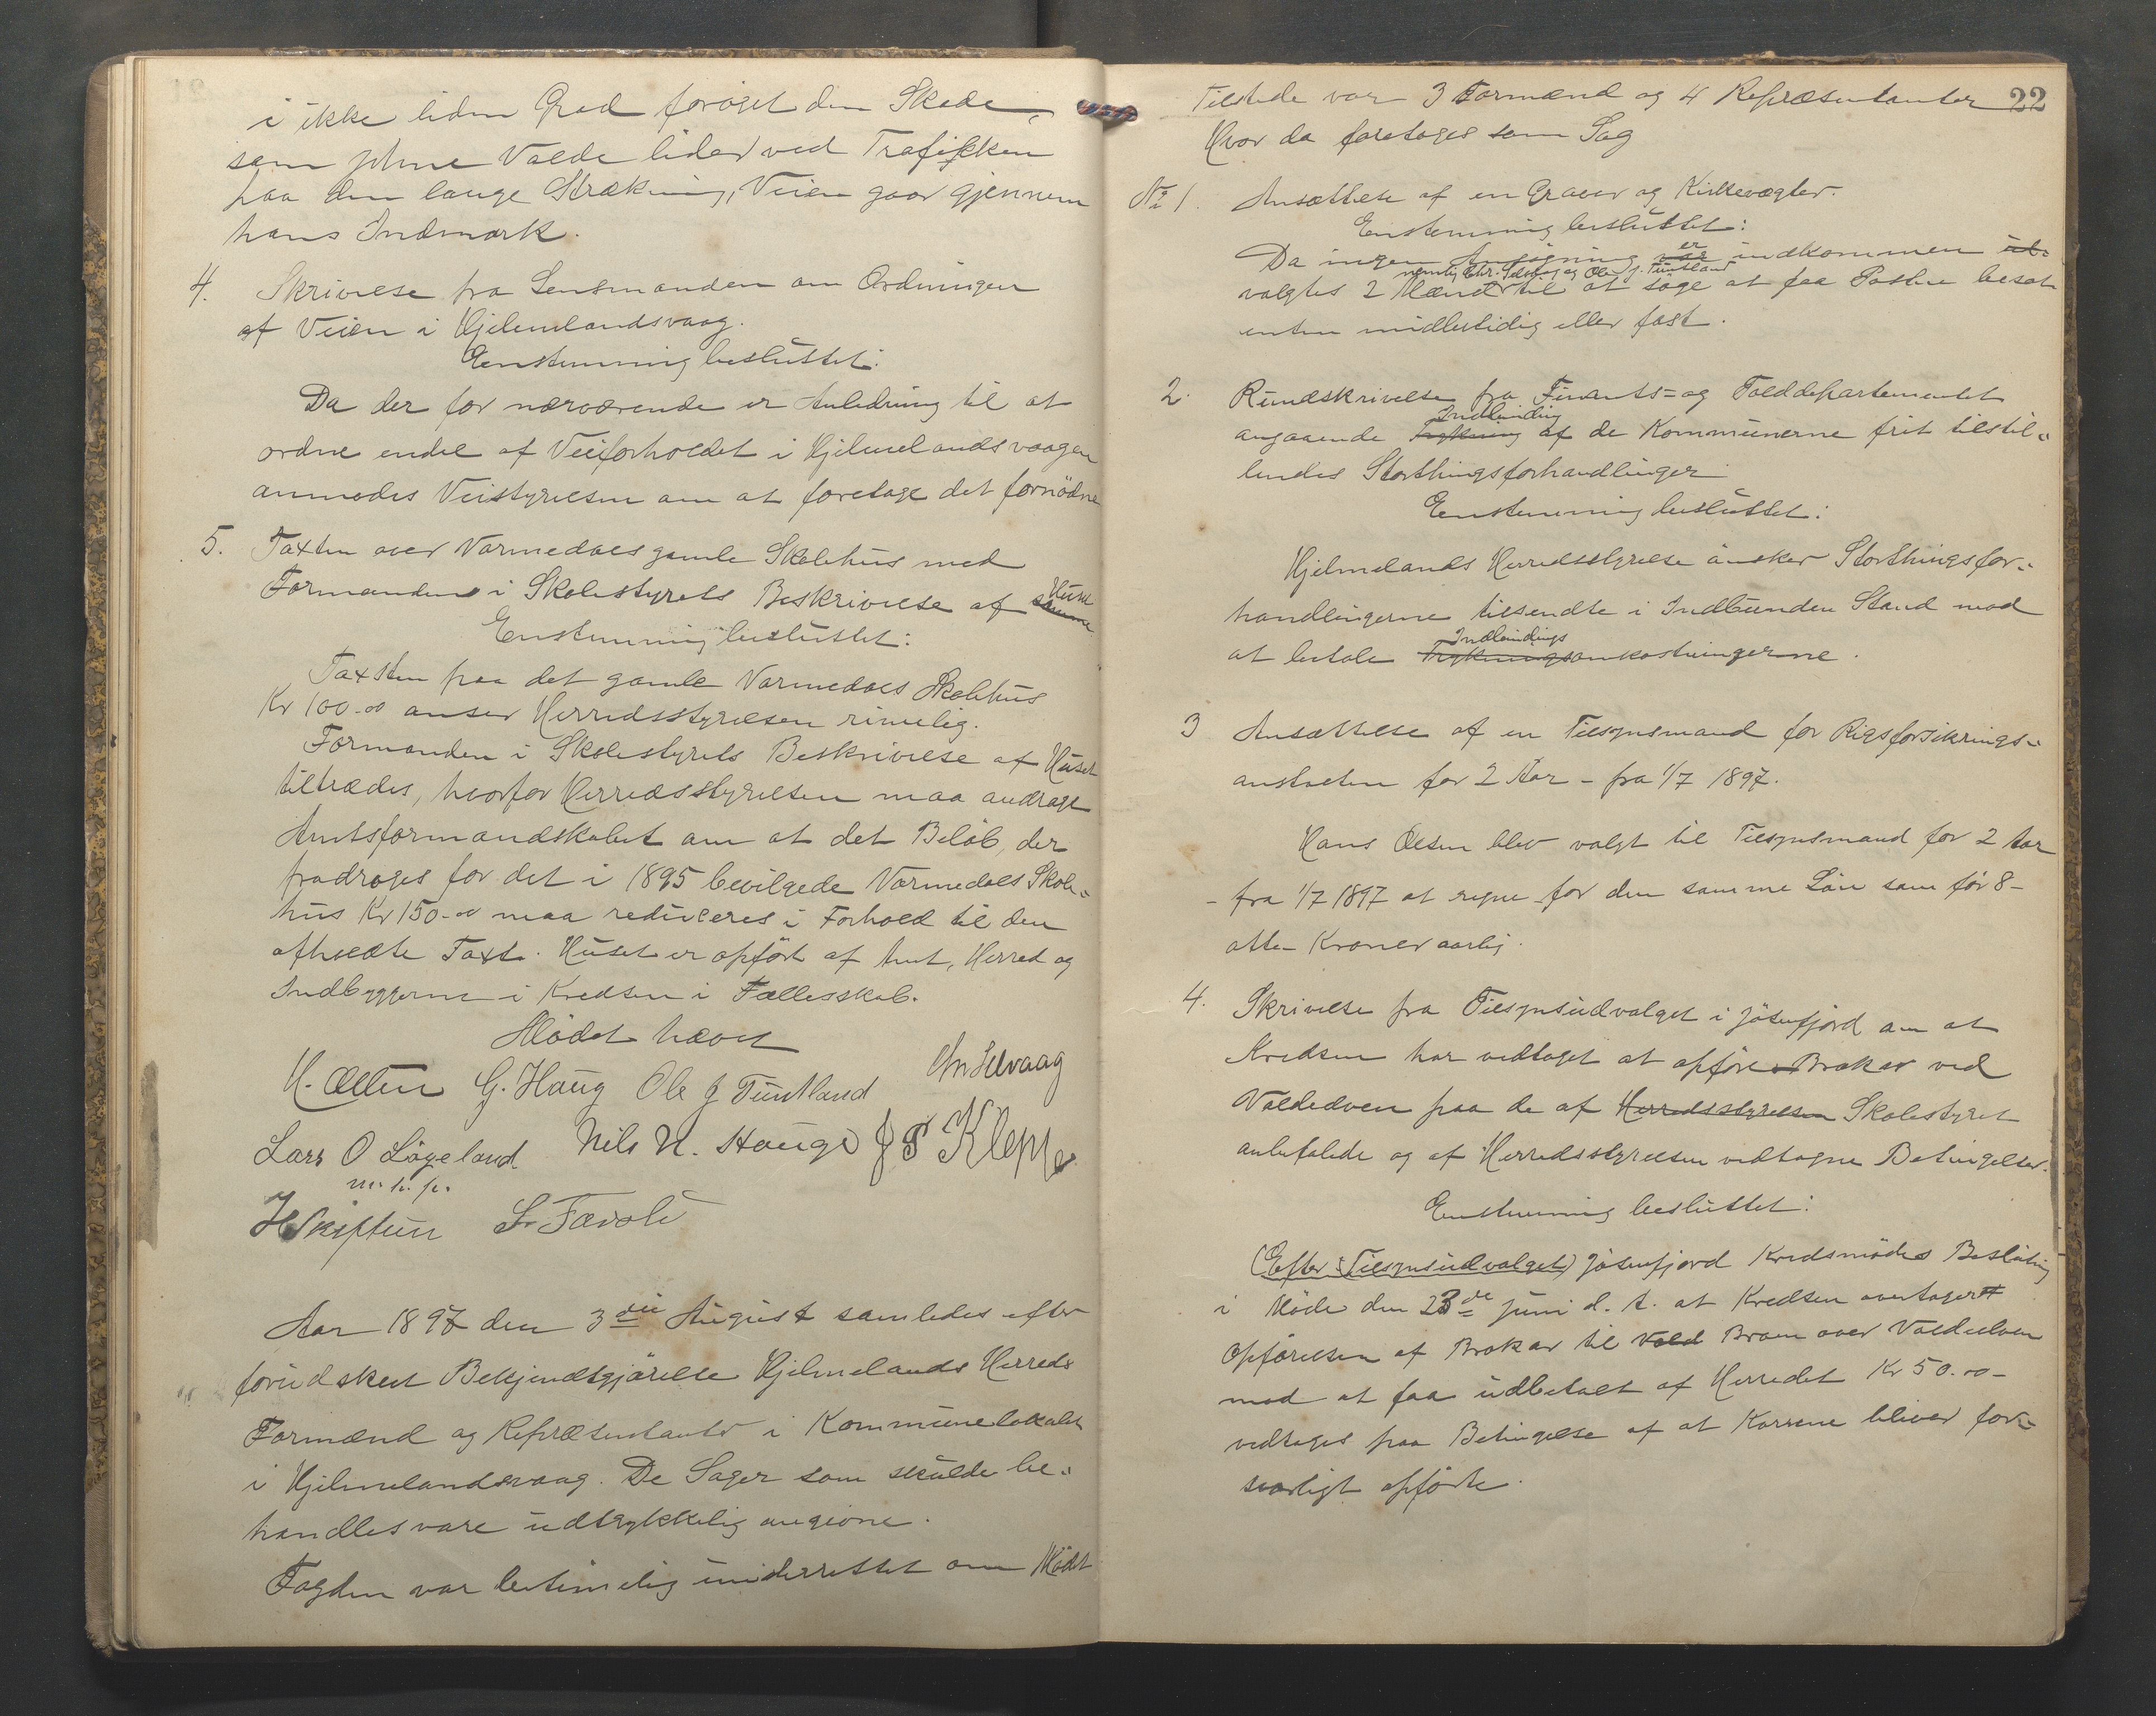 i ikke liden Grad forøget den Skade,
som Johne Valde lider ved Trafikken
paa den lange Strækning, Veien gaar gjennem
hans Indmark.
4. Skrivelse fra Lensmanden om Ordningen
af Veien i Hjelmelandsvaag.
Eenstemmig besluttet:
Da der for nærværende er Anledning til at
ordne endel af Veiforholdet i Hjelmelandsvaagen
anmodes Veistyrelsen om at foretage det fornødne
5. Taxten over Vormedals gamle Skolehus med
Formanden i Skolestyrets Beskrivelse af samme Huset
Enstemmig besluttet:
Taxsten paa det gamle Vormedals Skolehus
Kr 100.00 anser Herredsstyrelsen rimelig.
Formanden i Skolestyrets Beskrivelse af Huset
tiltrædes, hvorfor Herredsstyrelsen maa andrage
Amtsformandskabet om at det Beløb, der
fradroges for det i 1895 bevilgede Vormedals Skole-
hus Kr 150.00 maa reduceres i Forhold til den
afholdte Taxt. Huset er opført af Amt, Herred og
Indbyggerne i Kredsen i Fællesskab.
Mødet hævet
H. Olsen G. Haug Ole J Tuntland Chr Selvaag
Lars O Lägeland. Nils N. Hauge J S Kleppe
m. p. p.
H Skiftun S. Fævola
Aar 1897 den 3die August samledes efter
forudskeet Bekjendtgjørelse Hjelmelands Herreds
Formænd og Repræsentanter i Kommunelokalet
i Hjelmelandsvaag. De Sager som skulde be-
handles vare udtrykkelig angivne.
Fogden var betimelig underrettet om Mødet
22
Tilstede var 3 Formænd og 4 Repræsentanter
Hvor da foretoges som Sag
No 1. Ansættelse af en Graver og Kirkevægter.
Enstemmig besluttet:
er
Da ingen Ansøgning var indkommen ud-
nemlig Chr. Selvaag og Ole J. Tuntland
valgtes 2 Mænd til at søge at faa Posten besat
enten midlertidig eller fast.
2. Rundskrivelse fra Finants- og Tolddepartementet
Indbinding
angaaende Trykning af de Kommunerne frit tilstil-
lendes Storthingsforhandlinger
Eenstemmig besluttet:
Hjelmelands Herredsstyrelse ønsker Storthingsfor-
handlingerne tilsendte i Indbunden Stand mod
Indbindings
at betale Trykningsomkostningerne.
3 Ansættelse af en Tilsynsmand for Rigsforsikrings-
anstalten for 2 Aar - fra 1/7 1897.
Hans Olsen blev valgt til Tilsynsmand for 2 Aar
- fra 1/7 1897 at regne for den samme Løn som før 8-
otte Kroner aarlig.
4. Skrivelse fra Tilsynsudvalget i Jøsenfjord om at
Kredsen har vedtaget at opføre Brokar ved
Valdeelven paa de af Herredsstyrelsen Skolestyret
anbefalede og af Herredsstyrelsen vedtagne Betingelser.
Enstemmig besluttet:
(Efter Tilsynsudvalget) Jøsenfjord Kredsmødes Beslutning
i Møde den 23de Juni d. A. at Kredsen overtager
Opførelsen af Brokar til Vald Broen over Valdeelven
mod at faa udbetalt af Herredet Kr 50.00-
vedtages paa Betingelse af at Karrene bliver for-
svarligt opførte.